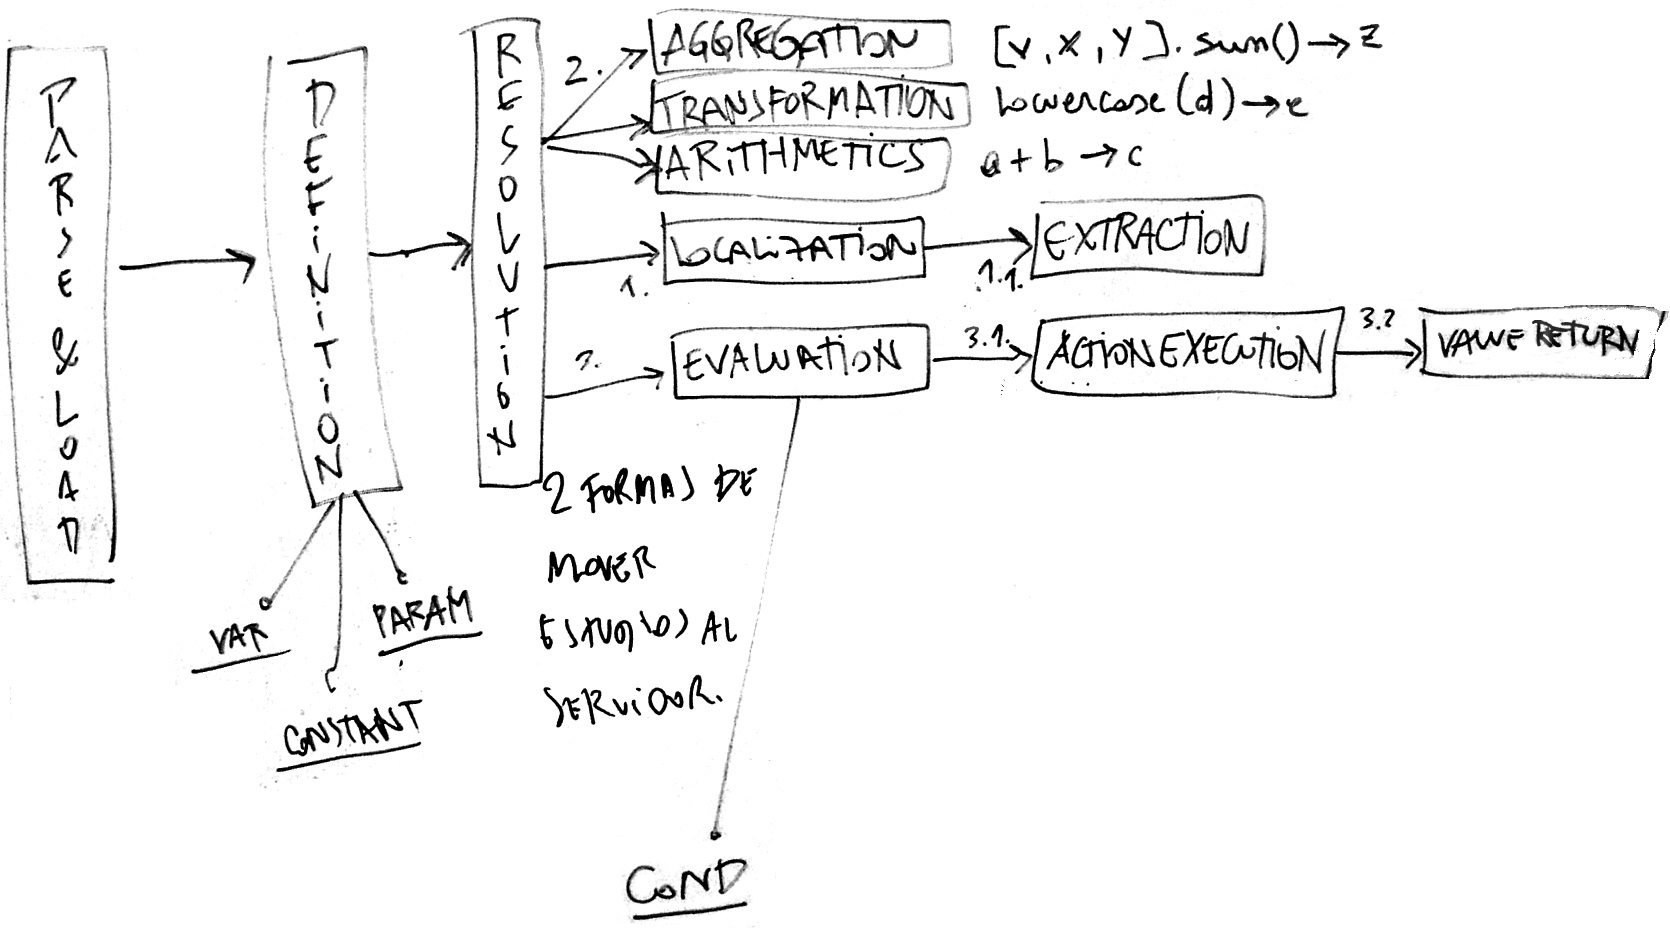 PARSE & LOAD
DEFINITION
RESOLUTION
2.
AGGREGATION
[v, x, y].sum() → z
TRANSFORMATION
lowercase(d) → e
ARITHMETICS
a + b → c
1.
LOCALIZATION
1.1.
EXTRACTION
3.
EVALUATION
3.1.
ACTION EXECUTION
3.2
VALUE RETURN
VAR
CONSTANT
PARAM
2 FORMAS DE
MOVER
ESTUDIOS AL
SERVIDOR.
COND